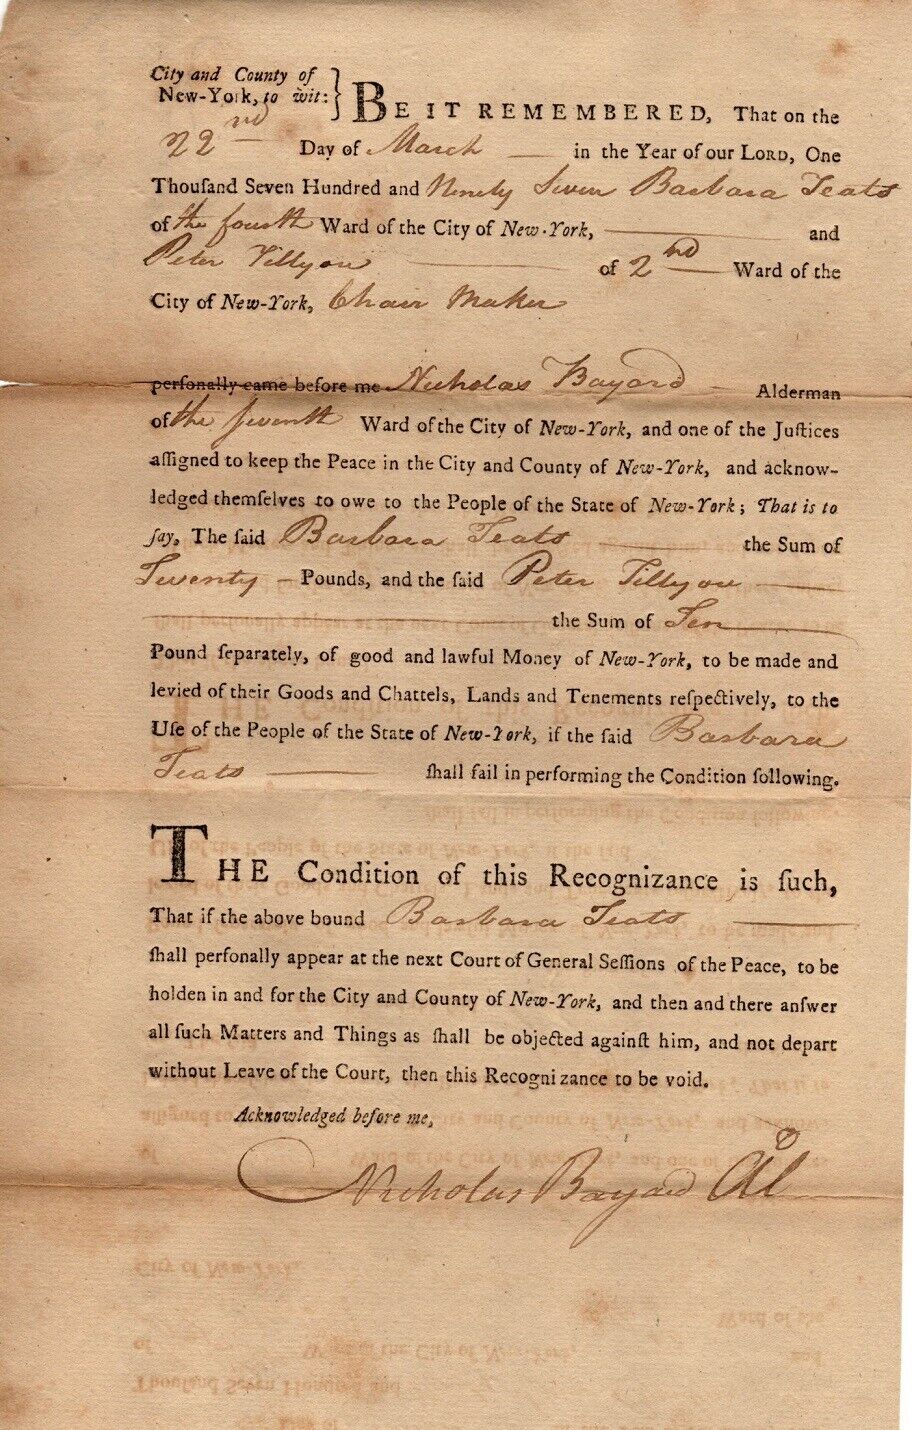 City and County of
New-York, to wit: } BE IT REMEMBERED, That on the
22nd Day of March in the Year of our LORD, One
Thouſand Seven Hundred and Ninety Seven Barbara Teats
of the fourth Ward of the City of New-York, and
Peter Tillyou of 2nd Ward of the
City of New-York, Chair Maker
perſonally came before me Nicholas Bayard Alderman
of the ſeventh Ward of the City of New-York, and one of the Juſtices
aſſigned to keep the Peace in the City and County of New-York, and acknow-
ledged themſelves to owe to the People of the State of New-York; That is to
ſay, The ſaid Barbara Teats the Sum of
Twenty Pounds, and the ſaid Peter Tillyou
the Sum of Ten
Pound ſeparately, of good and lawful Money of New-York, to be made and
levied of their Goods and Chattels, Lands and Tenements reſpectively, to the
Uſe of the People of the State of New-York, if the ſaid Barbara
Teats ſhall fail in performing the Condition following.
THE Condition of this Recognizance is ſuch,
That if the above bound Barbara Teats
ſhall perſonally appear at the next Court of General Seſſions of the Peace, to be
holden in and for the City and County of New-York, and then and there anſwer
all ſuch Matters and Things as ſhall be objected againſt him, and not depart
without Leave of the Court, then this Recognizance to be void.
Acknowledged before me,
Nicholas Bayard Al